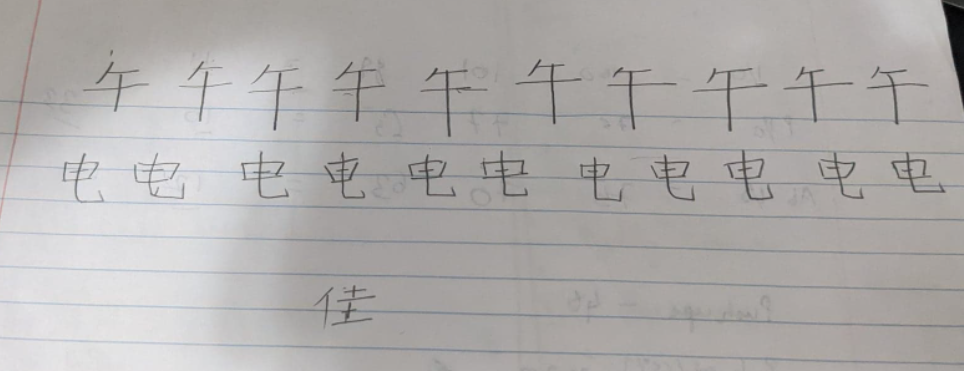 午 午 午 午 午 午 午 午 午 午
电 电 电 电 电 电 电 电 电 电 电
佳